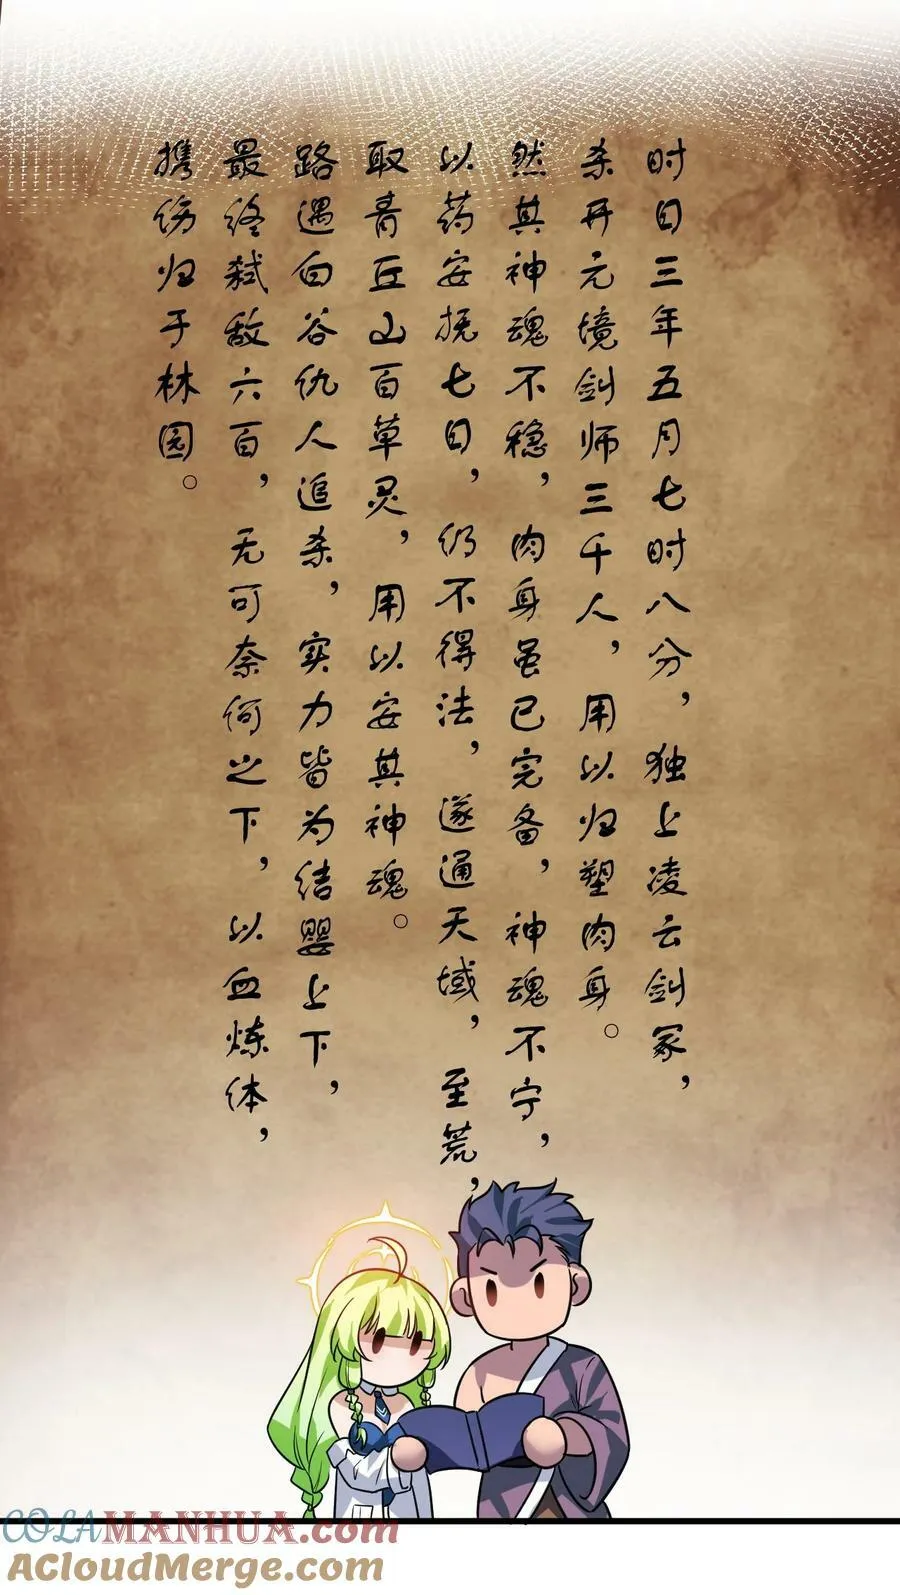 时日三年五月七时八分，独上凌云剑冢，
杀开元境剑师三千人，用以归塑肉身。
然其神魂不稳，肉身虽已完备，神魂不宁，
以药安抚七日，仍不得法，遂通天域，至荒，
取青丘山百草灵，用以安其神魂。
路遇白谷仇人追杀，实力皆为结婴上下，
最终弑敌六百，无可奈何之下，以血炼体，
携伤归于林园。
COLAMANHUA.com
ACloudMerge.com